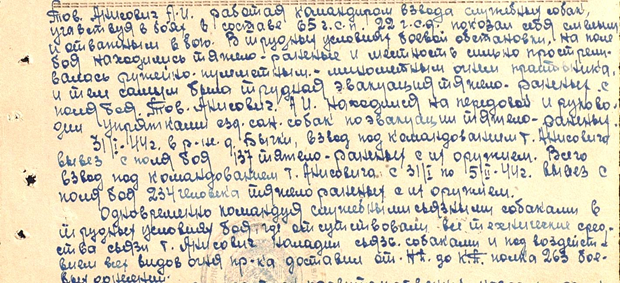 Тов. Анисович А.И. работая командиром взвода служебных собак,
участвуя в боях в составе 65 г.с.п. 22 г.с.д. показал себя смелым
и отважным в бою. В трудных условиях боевой обстановки, на поле
боя находились тяжело-раненые и местность сильно прострели-
валось ружейно-пулеметным-минометным огнем противника,
и тем самым была трудная эвакуация тяжело-раненых с
поля боя. Тов. Анисович А.И. находился на передовой и руково-
дил упряжками езд. сан. собак по эвакуации тяжело-раненых.
31/I-44г. в р-не д. Бычки, взвод под командованием т. Анисовича
вывез с поля боя 37 тяжело-раненых с их оружием. Всего
взвод под командованием т. Анисовича с 31/I по 15/II-44г. вывез с
поля боя 234 человека тяжело раненых с их оружием.
Одновременно командуя служебными связными собаками в
трудных условиях боя где отсутствовали все технические сред-
ства связи т. Анисович наладил связь собаками и под воздейст-
вием всех видов огня пр-ка доставил от до полка 263 бое-
вых донесений.